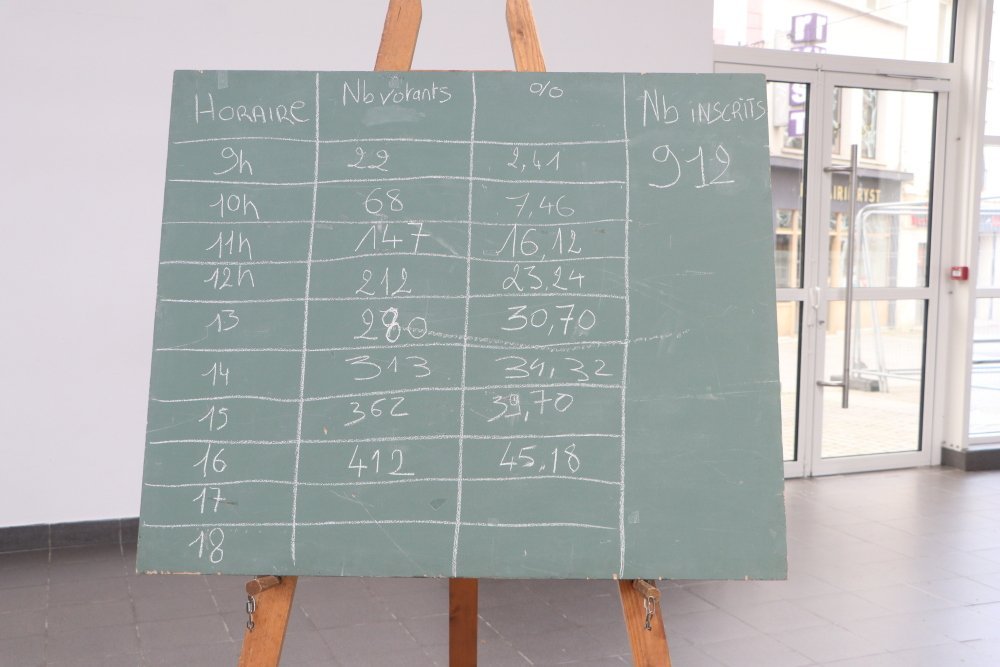 HORAIRE Nb votants % Nb INSCRITS
9h 22 2,41 912
10h 68 7,46
11h 147 16,12
12h 212 23,24
13 280 30,70
14 313 34,32
15 362 39,70
16 412 45,18
17
18